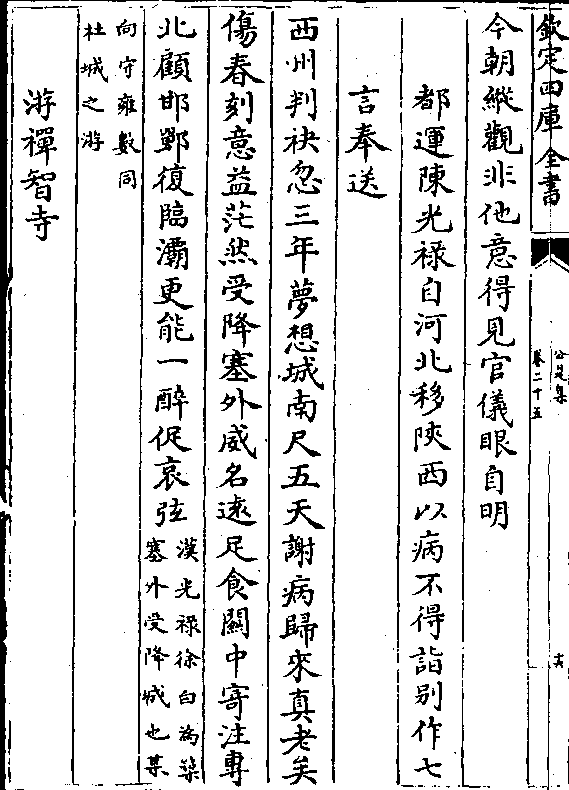 欽定四庫全書
公是集
卷二十五
今朝縱觀非他意得見官儀眼自明
都運陳光祿自河北移陝西以病不得詣别作七
言奉送
西州判袂忽三年夢想城南尺五天謝病歸來真老矣
傷春刻意益茫然受降塞外威名遠足食關中寄注專
北顧邯鄲復臨灞更能一醉促哀弦漢光祿徐自為築塞外受降城也某
向守雍數同杜城之游
游禪智寺